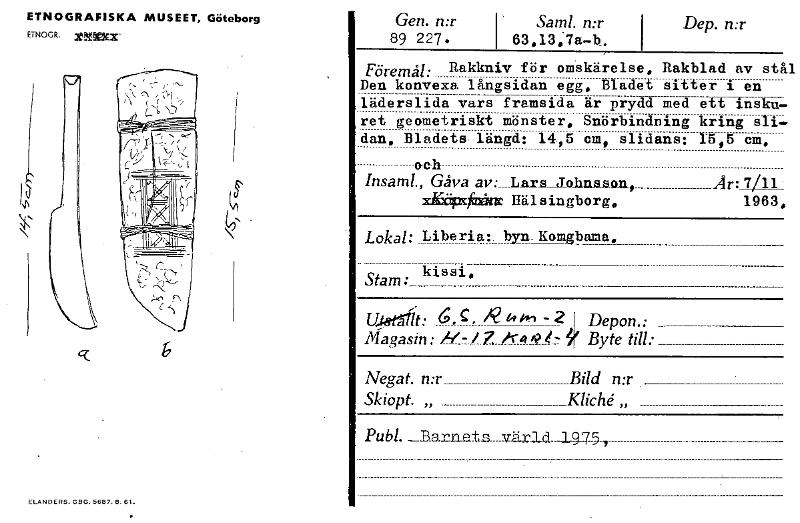 ETNOGRAFISKA MUSEET, Göteborg
ETNOGR.
14,5cm
15,5cm
a
b
ELANDERS. GBG. 5687. 8. 61.
Gen. n:r Saml. n:r Dep. n:r
89 227. 63.13.7a-b.
Föremål: Rakkniv för omskärelse. Rakblad av stål
Den konvexa långsidan egg. Bladet sitter i en
läderslida vars framsida är prydd med ett insku-
ret geometriskt mönster. Snörbindning kring sli-
dan. Bladets längd: 14,5 cm, slidans: 15,5 cm.
och
Insaml., Gåva av: Lars Johnsson, År: 7/11
Köpt från Hälsingborg. 1963.
Lokal: Liberia: byn Komgbama.
Stam: kissi.
Utställt: G.S. Rum-2 Depon.:
Magasin: H-17 Kart-4 Byte till:
Negat. n:r Bild n:r
Skiopt. „ Kliché „
Publ. Barnets värld 1975,